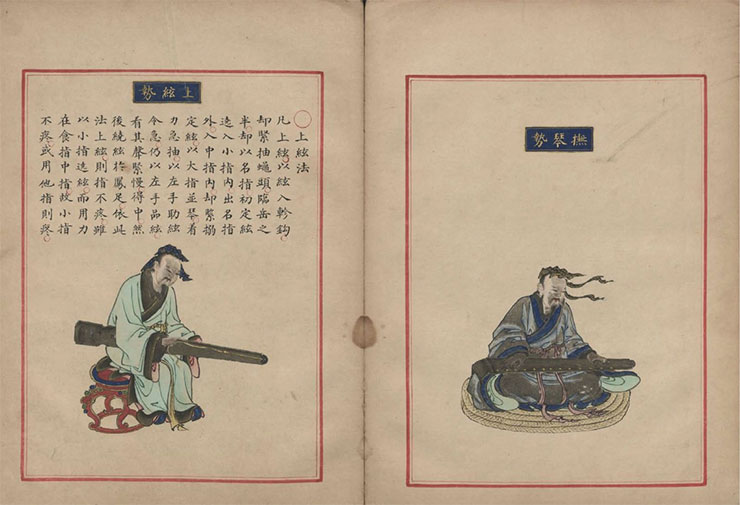 撫琴勢
上絃勢
〇上絃法
凡上絃以絃入軫鈎
却緊抽蠅頭臨岳之
半却以名指初定絃
遶入小指內出名指
外入中指內却緊搦
定絃以大指並琴着
力急抽以左手助絃
令急仍以左手品絃
看其聲緊慢得中然
後繞絃扵鳳足依此
法上絃則指不疼雖
以小指遶絃而用力
在食指中指故小指
不疼或用他指則疼